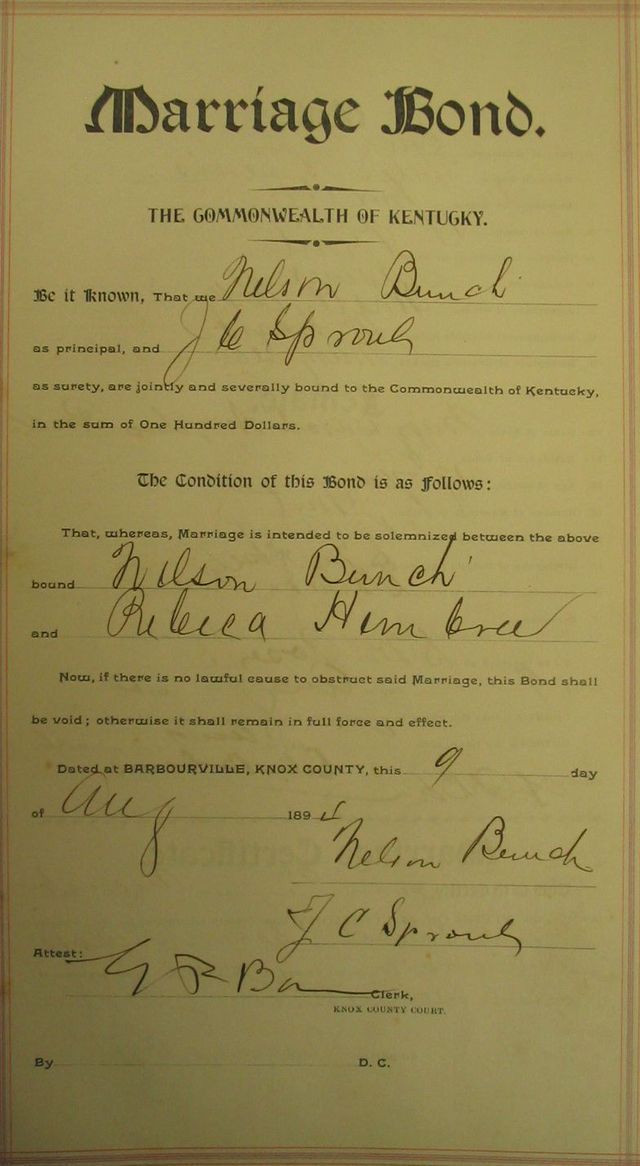 Marriage Bond.
THE COMMONWEALTH OF KENTUCKY.
Be it Known, That we Nelson Bunch
as principal, and J C Sproule
as surety, are jointly and severally bound to the Commonwealth of Kentucky,
in the sum of One Hundred Dollars.
The Condition of this Bond is as Follows:
That, whereas, Marriage is intended to be solemnized between the above
bound Nelson Bunch
and Rebecca Hembree
Now, if there is no lawful cause to obstruct said Marriage, this Bond shall
be void; otherwise it shall remain in full force and effect.
Dated at BARBOURVILLE, KNOX COUNTY, this 9 day
of Aug 189
Nelson Bunch
J C Sproule
Attest:
Clerk,
KNOX COUNTY COURT.
By D. C.